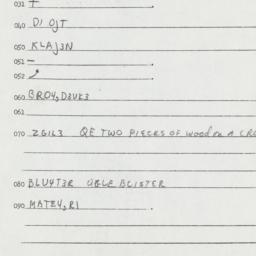 031 +
040 DI OJT
050 KLAJ3N
051 -
052
060 GROY, D3UK3
061
070 2GIL3 QE TWO PIECES OF wood on A CR
080 BLUYT3R ABLE BLISTER
090 MATEY, RI